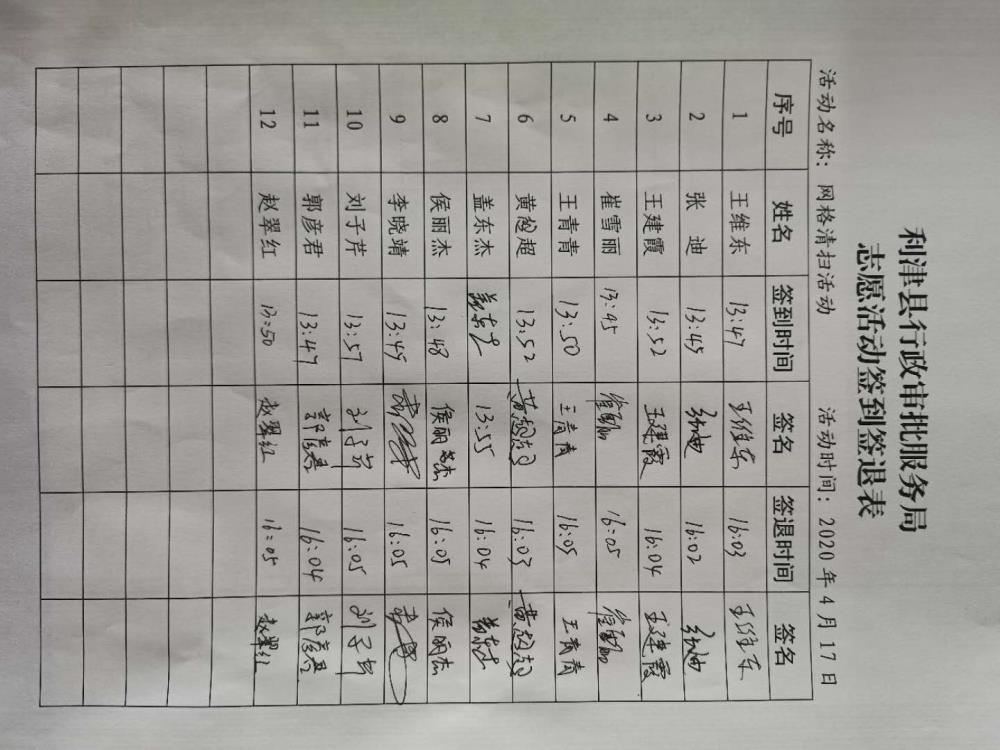 利津县行政审批服务局
志愿活动签到签退表
活动名称：网格清扫活动 活动时间：2020年4月17日
序号 姓名 签到时间 签名 签退时间 签名
1 王维东 13:47 王维东 16:03 王维东
2 张迪 13:45 张迪 16:02 张迪
3 王建霞 13:52 王建霞 16:04 王建霞
4 崔雪丽 13:45 崔雪丽 16:05 崔雪丽
5 王青青 13:50 王青青 16:05 王青青
6 黄超超 13:52 黄超超 16:03 黄超超
7 盖东杰 盖东杰 13:55 16:04 盖东杰
8 侯丽杰 13:48 侯丽杰 16:05 侯丽杰
9 李晓靖 13:45 16:05
10 刘子芹 13:57 刘子芹 16:05 刘子芹
11 郭彦君 13:47 郭彦君 16:04 郭彦君
12 赵翠红 13:50 赵翠红 16:05 赵翠红